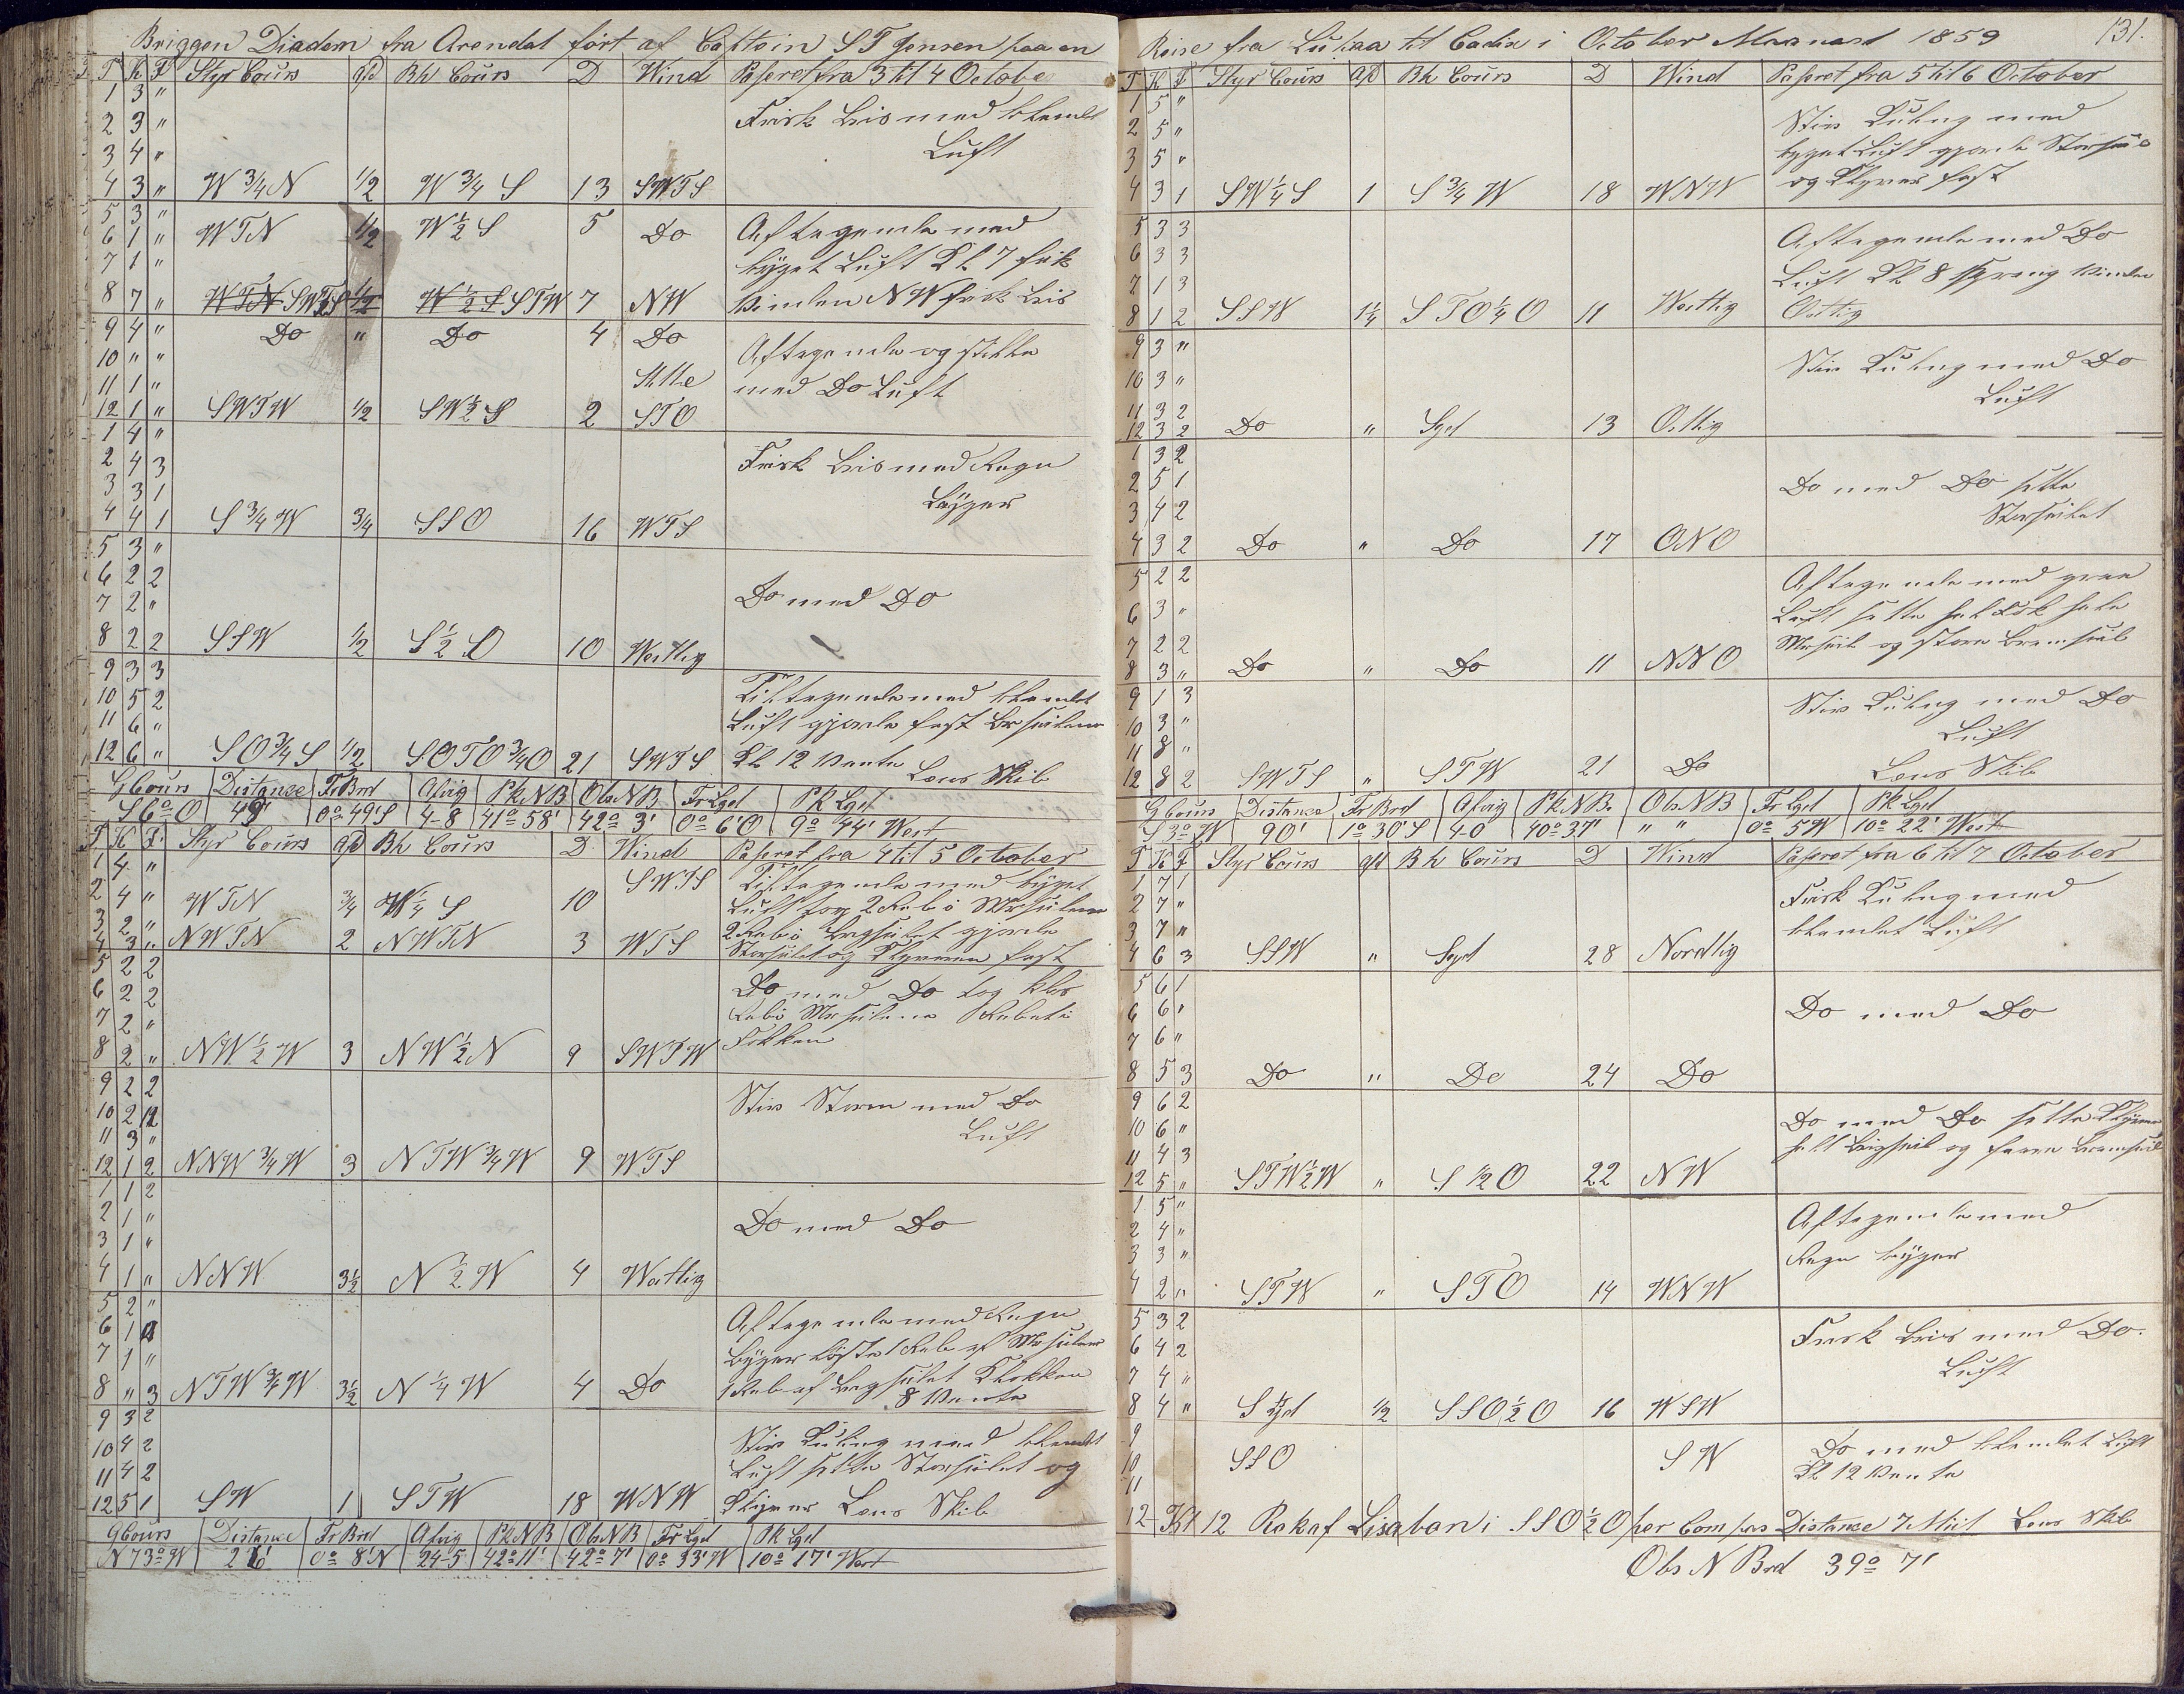 Briggen Diadem fra Arendal ført af Captein S T Jensen paa en
T K F Styr Cours afd Bh Cours D Wind Paseret fra 3 til 4 Octobe
1 3 "
2 3 " Frisk Bris med blandt
3 4 " Luft
4 3 " W 3/4 N 1/2 W 3/4 S 13 SWTS
5 3 "
6 1 " WTN 1/2 W 1/2 S 5 Do Aftagende med
7 1 " byget Luft Kl 7 fik
8 7 " WTN SWTS 1/2 W 1/2 S STW 7 NW Vinden NW frisk Bris
9 4 " Do " Do 4 Do
10 " " Aftagende og stille
11 1 " Stille med Do Luft
12 1 " SWTW 1/2 SW 1/2 S 2 STO
1 4 "
2 4 3 Frisk Bris med Regn
3 3 1 Byger
4 4 1 S 3/4 W 3/4 SSO 16 WTS
5 3 "
6 2 2
7 2 " Do med DO
8 2 2 SSW 1/2 S 1/2 O 10 Westlig
9 3 3
10 5 2 Tiltagende med blandet
11 6 " Luft gjorde fast
12 6 " SO 3/4 S 1/2 SOTO 3/4 O 21 SWTS Kl 12 Vente Lens Skib
G Cours Distance Fr Brd Afvig Pk NB Obs NB Fr Lgd Pk Lgd
S 6° O 49' 0° 49' S 4-8 41° 58' 42° 3' 0° 6' O 9° 44' West
T K F Styr Cours afd Bh Cours D Wind Paseret fra 4 til 5 October
1 4 " SWTS Tiltagende med byget
2 4 " WTN 3/4 W 1/4 S 10 Luft tog 2 Reb i Mersseilene
3 2 " 2 Reb i gjorde
4 3 " NWTN 2 NWTN 3 WTS Storseilet og Klyveren fast
5 2 2
6 2 2 Do med Do tog klos
7 2 " Reb i Mersseilene Rebet i
8 2 " NW 1/2 W 3 NW 1/2 N 9 SWTW Fokken
9 2 2
10 2 2 Stiv Storm med Do
11 3 " Luft
12 1 2 NNW 3/4 W 3 NTW 3/4 W 9 WTS
1 1 2
2 1 " Do med Do
3 1 "
4 1 " NNW 3 1/2 N 1/2 W 4 Westlig
5 2 "
6 1 Aftagende med Regn
7 1 " byger løste 1 Reb af Mersseilene
8 " 3 NTW 3/4 W 3 1/2 N 1/4 W 4 Do 1 Reb af Klokken
9 3 2 8 Vente
10 4 2 Stiv Kuling med blandt
11 4 2 Luft sette Storseilet og
12 5 1 SW 1 STW 18 WNW Klyver Lens Skib
G Cours Distance Fr Brd Afvig Pk NB Obs NB Fr Lgd Pk Lgd
N 73° W 26' 0° 8' N 24-5 42° 11' 42° 7' 0° 33' W 10° 17' West
Reise fra til Cadix i October Maaned 1859 131.
T K F Styr Cours afd Bh Cours D Wind Paseret fra 5 til 6 October
1 5 "
2 5 " Stiv Kuling med
3 5 " byget Luft gjorde Storseil
4 3 1 SW 1/4 S 1 S 3/4 W 18 WNW og Klyver fast
5 3 3
6 3 3 Aftagende med Do
7 1 3 Luft Kl 8 sprang Vinden
8 1 2 SSW 1 1/4 STO 1/4 O 11 Westlig Ostlig
9 3 "
10 3 " Stiv Kuling med Do
11 3 2 Luft
12 3 2 Do " Syd 13 Ostlig
1 3 2
2 5 1 Do med Do sette
3 4 2 Storseilet
4 3 2 Do " Do 17 ONO
5 2 2 Aftagende med graa
6 3 " Luft sette
7 2 2 Mersseil og store Bramseil
8 3 " Do " Do 11 NNO
9 1 3 Stiv Kuling med Do
10 3 " Luft
11 8 "
12 8 2 SWTS " STW 21 Do Lens Skib
G Cours Distance Fr Brd Afvig Pk NB. Obs NB Fr Lgd Pk Lgd
S 3° W 90' 1° 30' S 4-0 40° 37' " " 0° 5 W 10° 22' West
T K F Styr Cours afd Bh Cours D Wind Paseret fra 6 til 7 October
1 7 1
2 7 " Frisk Kuling med
3 7 " blandet Luft
4 6 3 SSW " Syd 28 Nordlig
5 6 1
6 6 " Do med Do
7 6 "
8 5 3 Do " Do 24 Do
9 6 2
10 6 " Do med Do sette Klyver
11 4 3 og Bramseil
12 5 " STW 1/2 W " S 1/2 O 22 NW
1 5 "
2 4 " Aftagende med
3 3 " Regn byger
4 2 " STW " STO 14 WNW
5 3 2
6 4 2 Frisk Bris med Do.
7 4 " Luft
8 4 " Syd 1/2 SSO 1/2 O 16 WSW
9
10 SSO SW Do med blandet Luft
11 Kl 12 Vente
12 Kl 12 Rok af Lisabon i SSO 1/2 O per Compas Distance 7 Miil Lens Skib
Obs N Brd 39° 7'